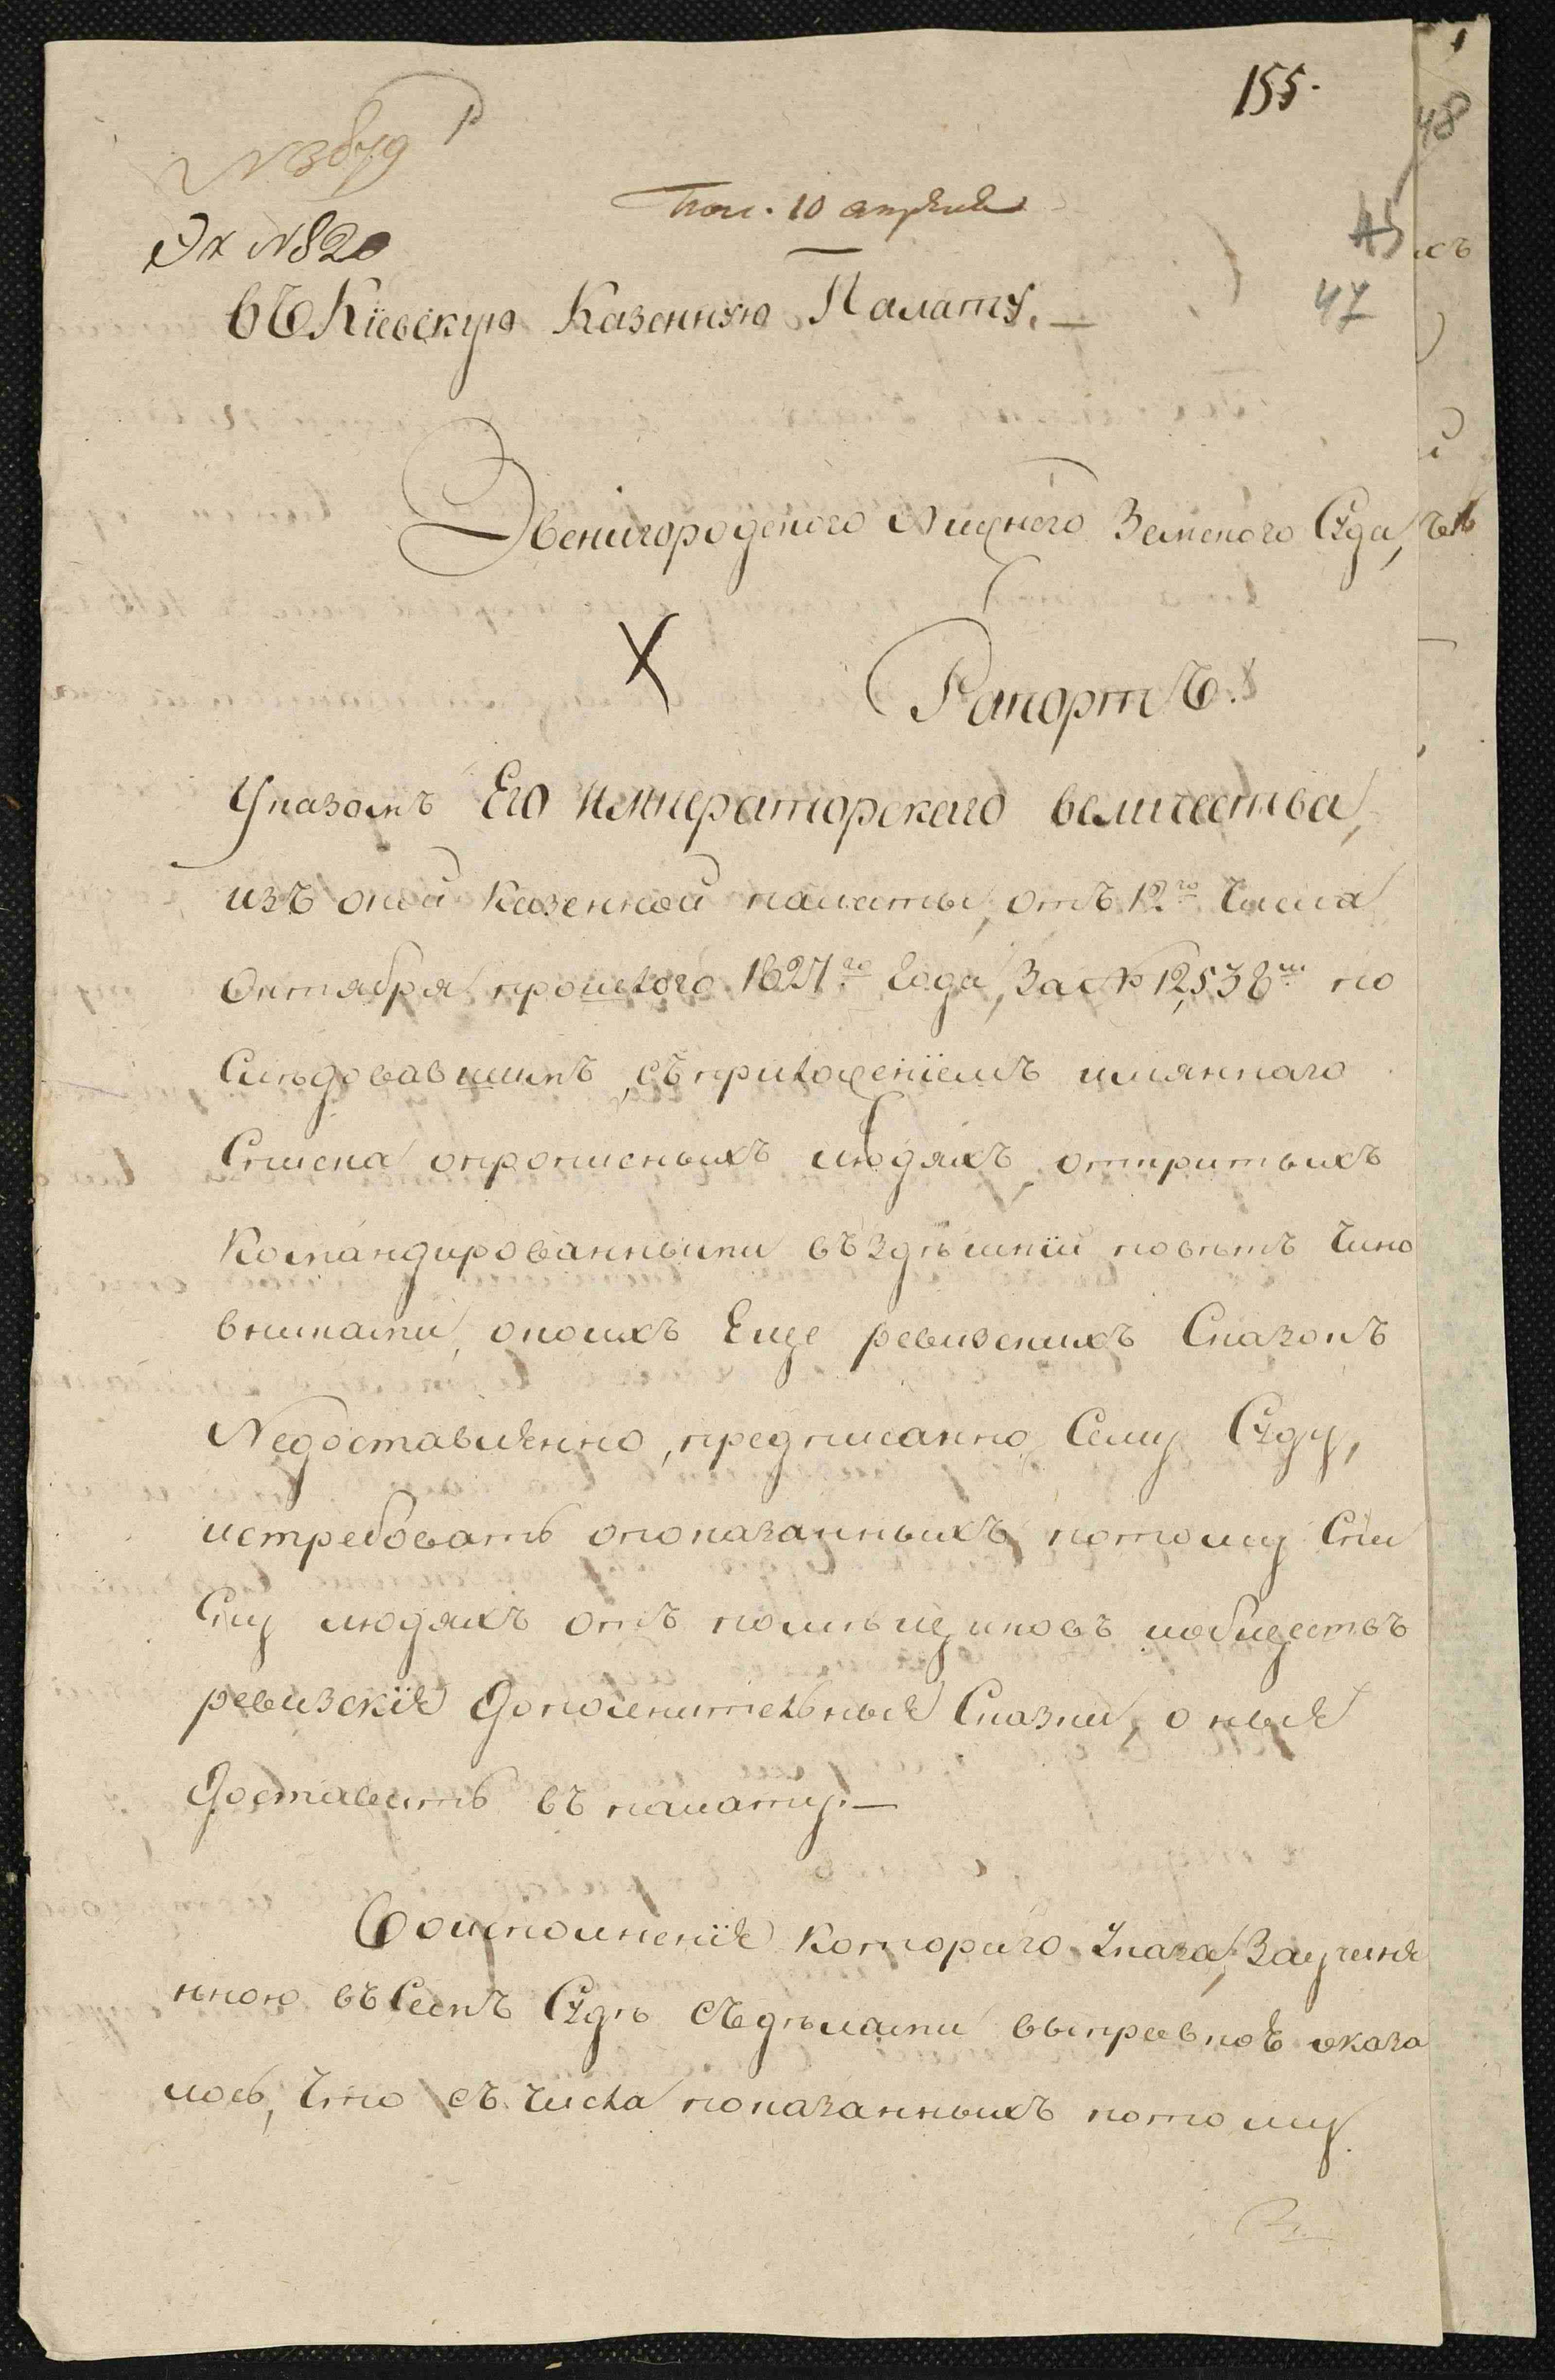 155.
48
N 3879
Пол. 10 апреля
45
Эк N 820
47
въ Кіевскую Казенную Палату. —
Звенигородского Нижнего Земского Суда,
X
Рапортъ.
Указомъ Его Императорского величества,
изъ оной Казенной палаты, отъ 12го Числа
Октября прошлого 1827го Года, За № 12,538м по
Слѣдовавшимъ, съ приложеніемъ имяннаго
Списка опропсеныхъ людяхъ, открытыхъ
Командированными въ здѣшній повѣтъ Чино
вниками, окоихъ Еще ревизскихъ Сказокъ
Недоставленно, предписанно Сему Суду,
истребовать опоказанныхъ потому Спи
Ску людяхъ отъ помѣщиковъ иобществъ
ревизскіе Дополнительные Сказки, оные
Доставить въ палату. —
Воисполненіе Которого Указа, Заучине
нною въ Семъ Судѣ Съ дѣлами выправкоѣ оказа
лось, Что съ Числа показанныхъ потому